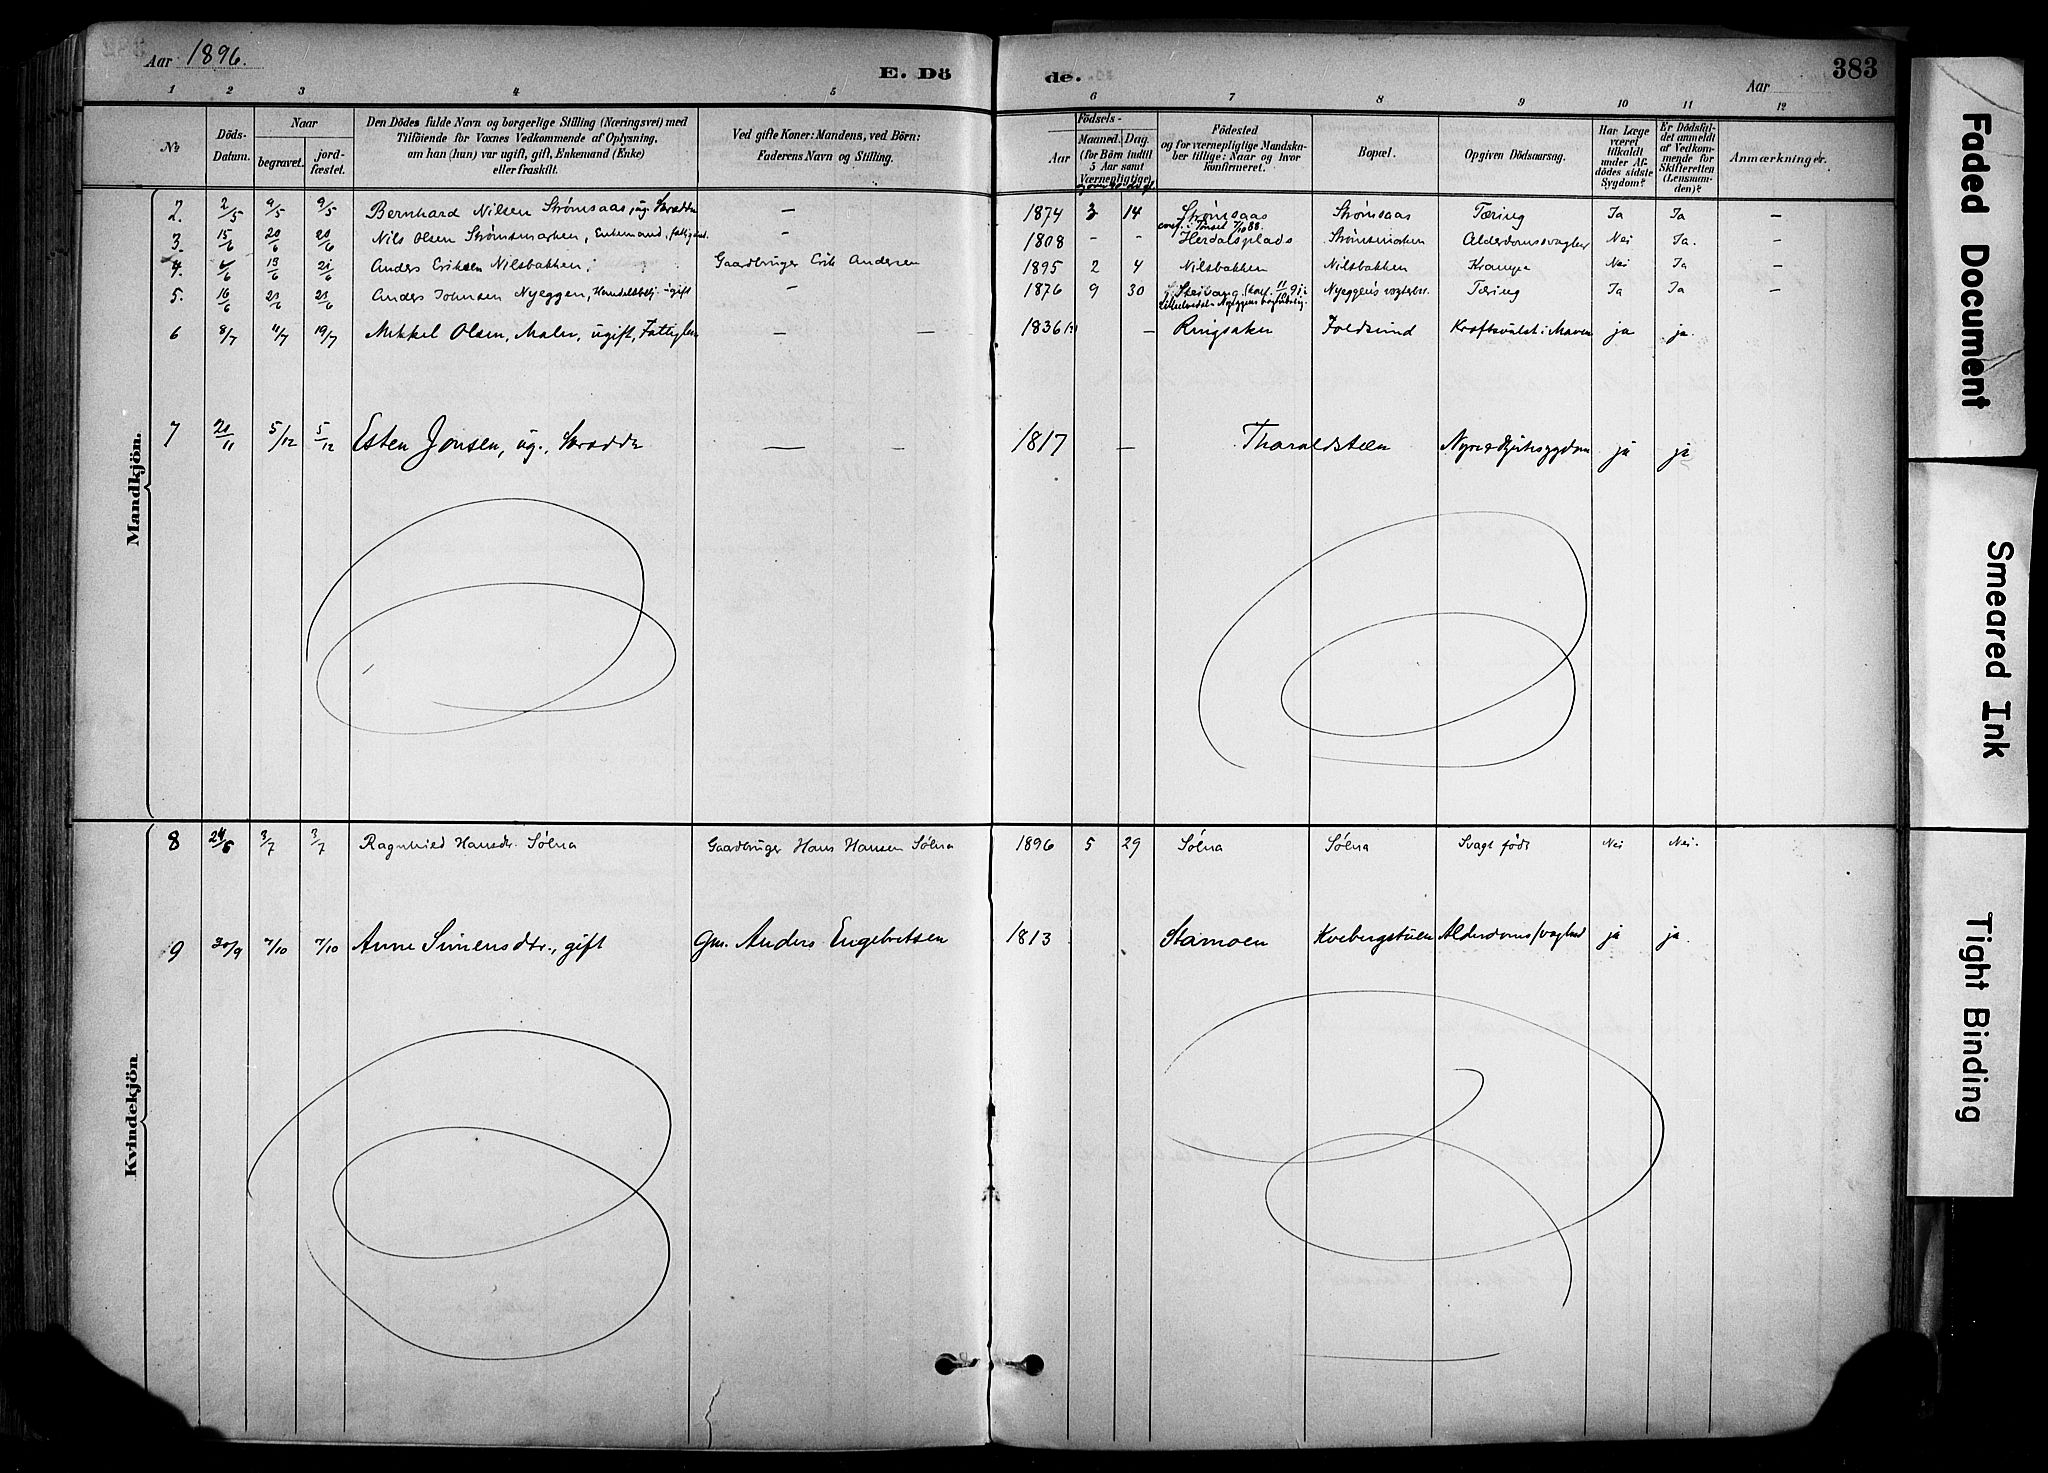 Aar 1896.
E. Dö
de.
Aar
383
1 2 3 4 5 6 7 8 9 10 11 12
No
Döds-Datum.
Naar
begravet.
jord-fæstet.
Den Dödes fulde Navn og borgerlige Stilling (Næringsvei) med
Tilföiende for Voxnes Vedkommende af Oplysning,
om han (hun) var ugift, gift, Enkemand (Enke)
eller fraskilt.
Ved gifte Koner: Mandens, ved Börn:
Faderens Navn og Stilling.
Födsels-
Aar
Maaned. Dag.
(for Börn indtil
5 Aar samt
Værnepligtige)
Födested
og for værnepligtige Mandska-
ber tillige: Naar og hvor
konfirmeret.
Bopæl.
Opgiven Dödsaarsag.
Har Læge
været
tilkaldt
under Af-
dödes sidste
Sygdom?
Er Dödsfal-
det anmeldt
af Vedkom-
mende for
Skifteretten
(Lensman-
den)?
Anmærkninger.
Mandkjön.
2. 2/5 9/5 9/5 Bernhard Nilsen Strømsaas, ug. Skrædder — 1874 3 14 Strømsaas Strømsaas Tæring Ja Ja —
3. 15/6 20/6 20/6 Nils Olsen Strømsmarken, Enkemand, fattigl. 1808 - - Herdalsplads Strømsmarken Alderdomssvaghed Nei Ja. —
4. 6/6 13/6 21/6 Anders Eriksen Nilsbakken, Gaardbruger Erik Andersen 1895 2 4 Nilsbakken Nilsbakken Krampe Nei Ja —
5. 16/6 21/6 21/6 Anders Johnsen Nyeggen, Handelsbetj. ugift — 1876 9 30 Nyeggens Tæring Ja Ja —
6 8/7 11/7 19/7 Mikkel Olsen, Maler, ugift, Fattiglem — — 1836 — Ringsaker Foldsund Kræftsvulst i Maven ja ja.
7 20/11 5/12 5/12 Esten Jonsen, ug., Skrædder — — 1817 — Tharaldsteen ja ja
Kvindekjön
8 24/6 3/7 3/7 Ragnhild Hansdr. Sølna Gaardbruger Hans Hansen Sølna 1896 5 29 Sølna Sølna Svagt født Nei Nei.
9 30/9 7/10 7/10 Anne Simensdtr., gift Gm. Anders Engebretsen 1813 Stamoen Kvebergstuen Alderdomssvaghed ja ja.
Faded Document
Smeared Ink
Tight Binding